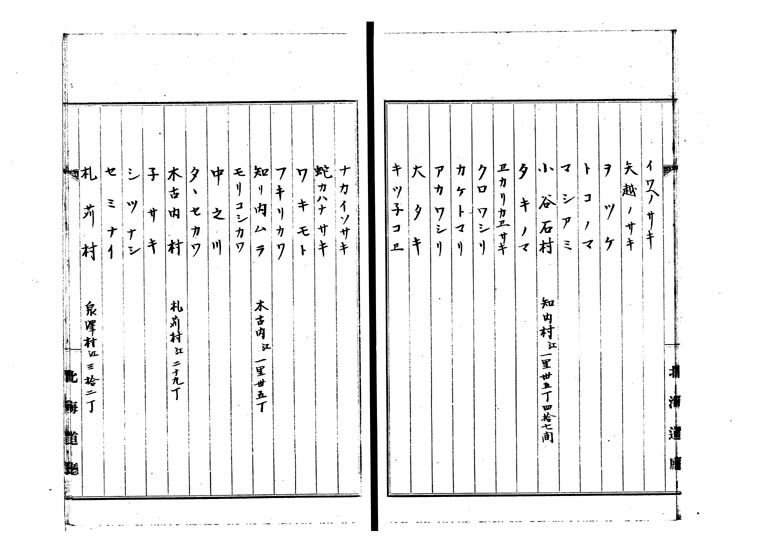 イワノサキ
矢越ノサキ
ヲツケ
トコノマ
マシアミ
小谷石村 知内村江一里卅五丁四拾七間
タキノマ
ヱカリカヱサキ
クロワシリ
カケトマリ
アカワシリ
大タキ
キツ子コヱ
北海道庁
ナカイソサキ
蛇カハナサキ
ワキモト
フキリカワ
知リ内ムラ 木古内江一里卅五丁
モリコシカワ
中之川
タヽセカワ
木古内村 札苅村江二十九丁
子サキ
シツナシ
セミナイ
札苅村 泉澤村江三拾二丁
北海道廳